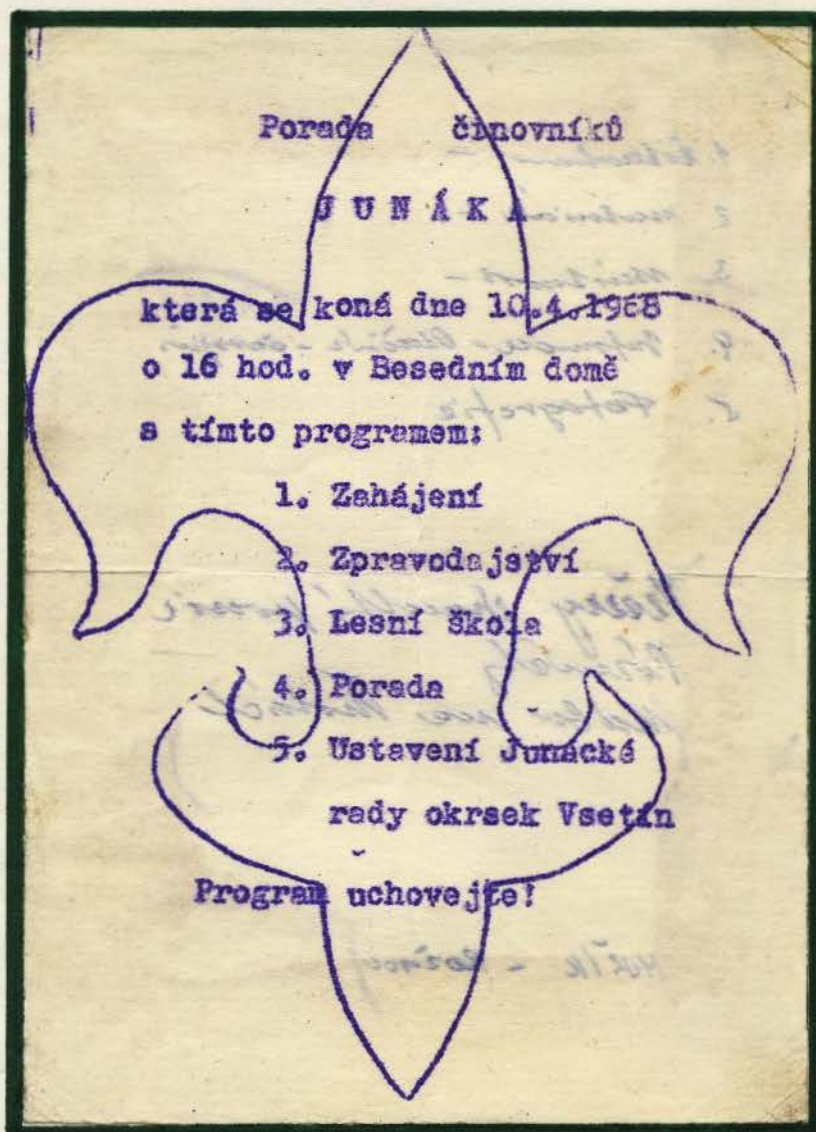 Porada činovníků
JUNÁKA
která se koná dne 10.4.1968
o 16 hod. v Besedním domě
s tímto programem:
1. Zahájení
2. Zpravodajství
3. Lesní škola
4. Porada
5. Ustavení Junácké
rady okrsek Vsetín
Program uchovejte!